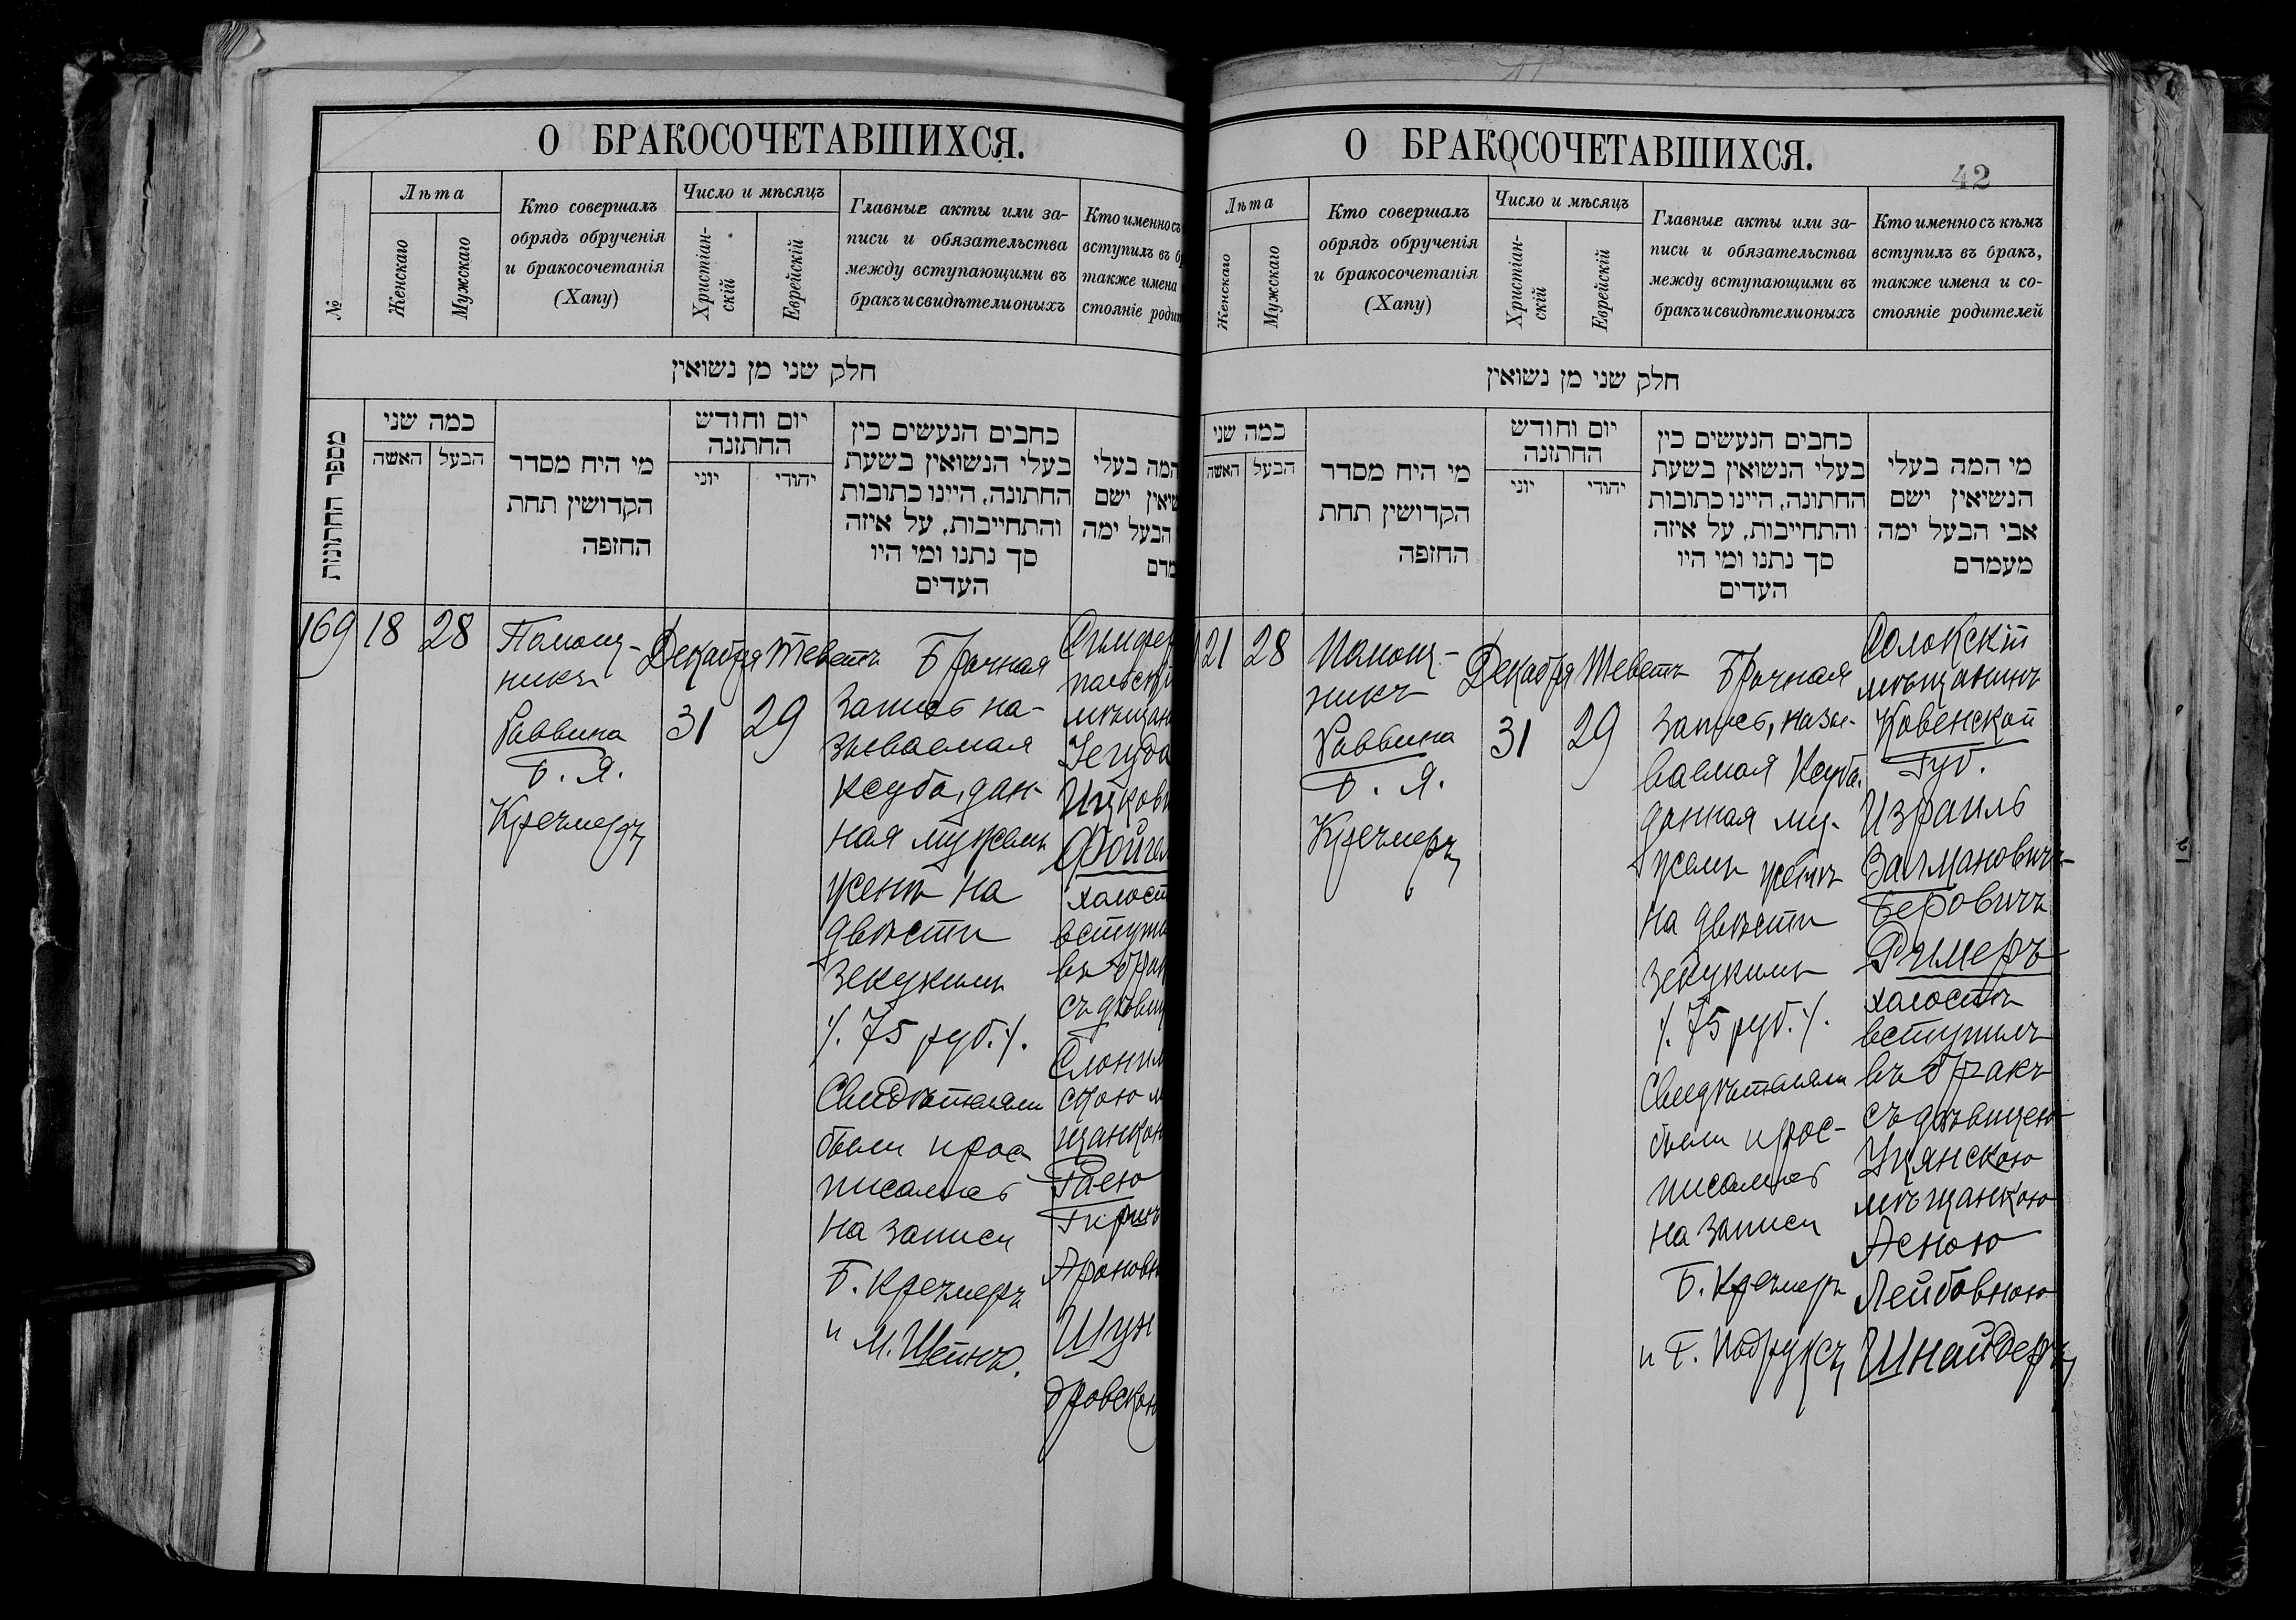 О БРАКОСОЧЕТАВШИХСЯ.
№
Лѣта
Женскаго
Мужскаго
Кто совершалъ
обрядъ обрученія
и бракосочетанія
(Хапу)
Число и мѣсяцъ
Христіан-
скій
Еврейскій
Главные акты или за-
писи и обязательства
между вступающими въ
бракъ и свидѣтели оныхъ
Кто именно съ
вступилъ въ б
также имена
стояніе роди
חלק שני מן נשואין
מספר החתונות
כמה שני
האשה
הבעל
מי היח מסדר
הקדושין תחת
החופה
יום וחודש
החתונה
יוני
יהודי
כחבים הנעשים כין
בעלי הנשואין בשעת
החתונה, היינו כתובות
והתחייבות, על איזה
סך נתנו ומי היו
העדים
המה בעלי
שואין ישם
הבעל ימה
מדם
169
18
28
Помощ-
никъ
Раввина
Б. Я.
Кречмеръ
Декабря
31
Теветъ
29
Брачная
запись на-
зываемая
Ксуба, дан-
ная мужемъ
женѣ на
двѣсти
зекукимъ
/. 75 руб. /.
Свидѣтелями
были
на записи
Б. Кречмеръ
и М. Штейнъ.
Симфер
польскі
мѣщан
Іегуда
Ицкови
Фойгел
холост
вступи
въ брак
съ дѣвиц
Слоним
скою м
щанкою
Раею
Арановн
Шун
дровскою
О БРАКОСОЧЕТАВШИХСЯ.
42
Лѣта
Женскаго
Мужскаго
Кто совершалъ
обрядъ обрученія
и бракосочетанія
(Хапу)
Число и мѣсяцъ
Христіан-
скій
Еврейскій
Главные акты или за-
писи и обязательства
между вступающими въ
бракъ и свидѣтели оныхъ
Кто именно съ кѣмъ
вступилъ въ бракъ,
также имена и со-
стояніе родителей
חלק שני מן נשואין
כמה שני
האשה
הבעל
מי היח מסדר
הקדושין תחת
החופה
יום וחודש
החתונה
יוני
יהודי
כחבים הנעשים כין
בעלי הנשואין בשעת
החתונה, היינו כתובות
והתחייבות, על איזה
סך נתנו ומי היו
העדים
מי המה בעלי
הנשיאין ישם
אבי הבעל ימה
מעמדם
21
28
Помощ-
никъ
Раввина
Б. Я.
Кречмеръ
Декабря
31
Теветъ
29
Брачная
запись, назы-
ваемая Ксуба.
данная му-
жемъ женѣ
на двѣсти
зекукимъ
/. 75 руб. /.
Свидѣтелями
были
на записи
Б. Кречмеръ
и Г.
Солокскій
мѣщанинъ
Ковенской
Губ.
Израиль
Залмановичъ-
Беровичъ
Римеръ
холостъ
вступилъ
въ бракъ
съ дѣвицею
Уцянскою
мѣщанкою
Асною
Лейбовною
Шнайдеръ